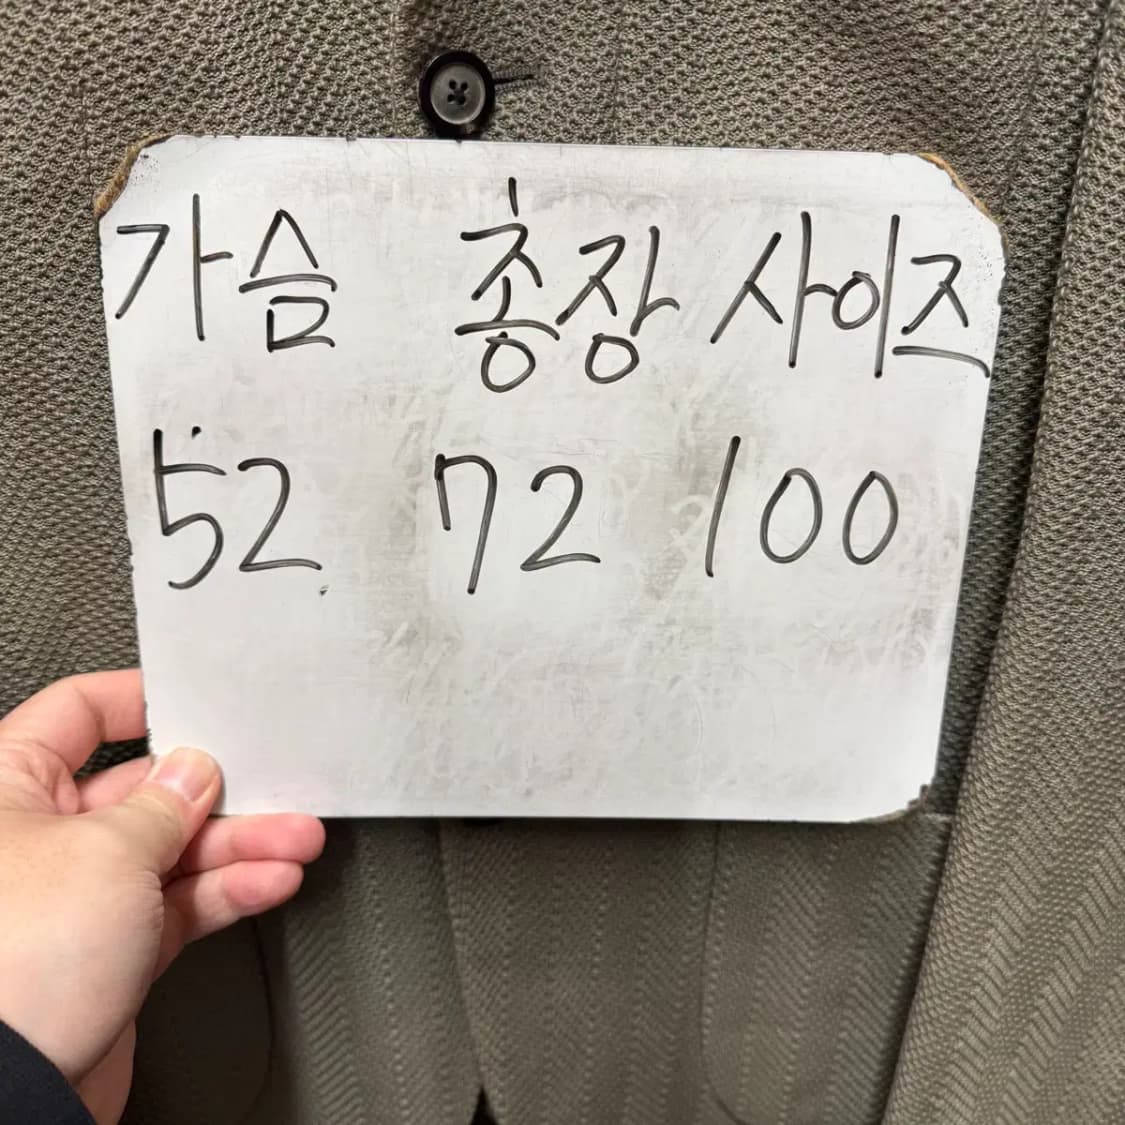 가슴 총장 사이즈
52 72 100